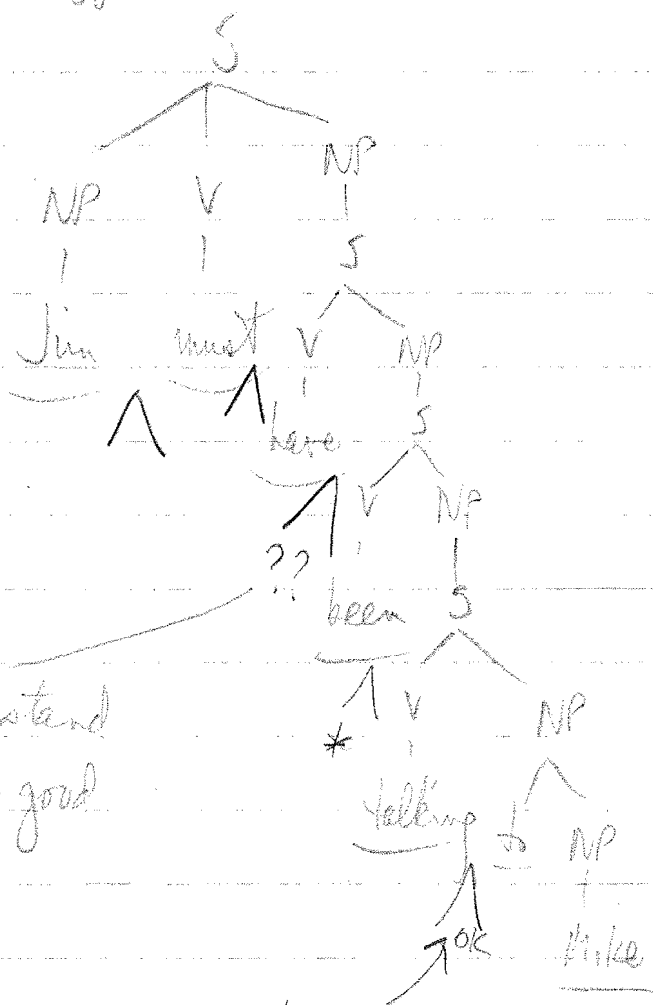 S
NP V NP
S
Jim must V NP
have S
V NP
??
been S
stand V NP
*
good
talking to NP
OK Mike